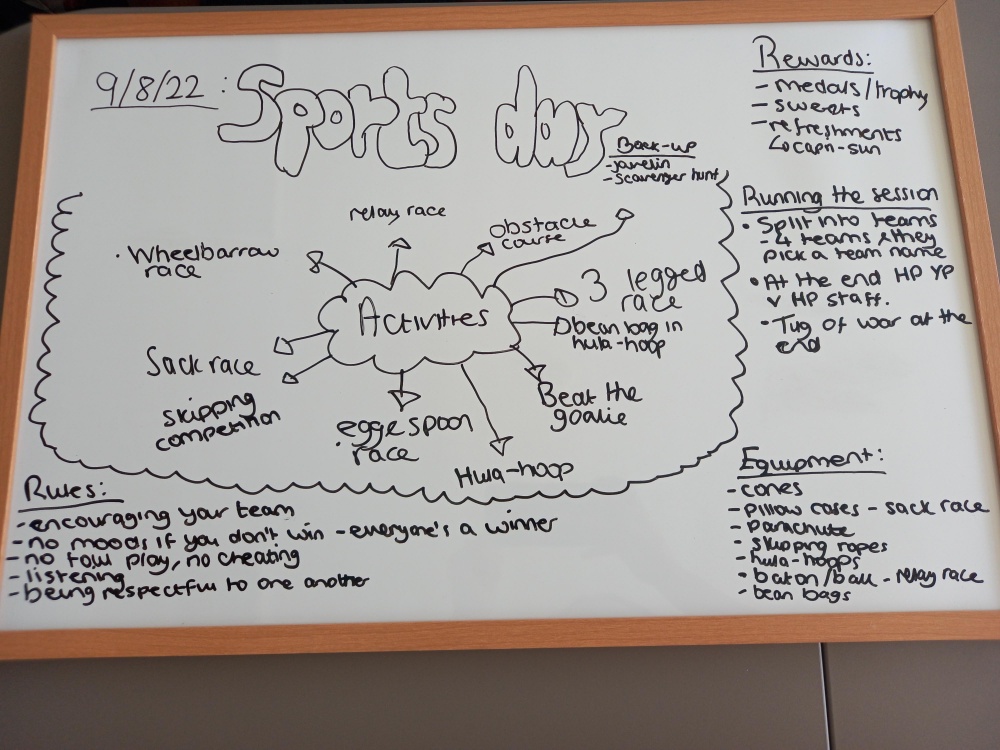 9/8/22 : Sports day
Back-up
- javelin
- scavenger hunt
Rewards:
- medals/trophy
- sweets
- refreshments
↳ capri-sun
Running the session
• Split into teams
- 4 teams & they
pick a team name
• At the end HP YP
v HP staff.
• Tug of war at the
end
Activities
relay race
obstacle
course
3 legged
race
bean bag in
hula-hoop
Beat the
goalie
Hula-hoop
egg & spoon
race
skipping
competition
Sack race
• Wheelbarrow
race
Rules:
- encouraging your team
- no moods if you don't win - everyone's a winner
- no foul play, no cheating
- listening
- being respectful to one another
Equipment:
- cones
- pillow cases - sack race
- parachute
- skipping ropes
- hula-hoops
- baton/ball - relay race
- bean bags